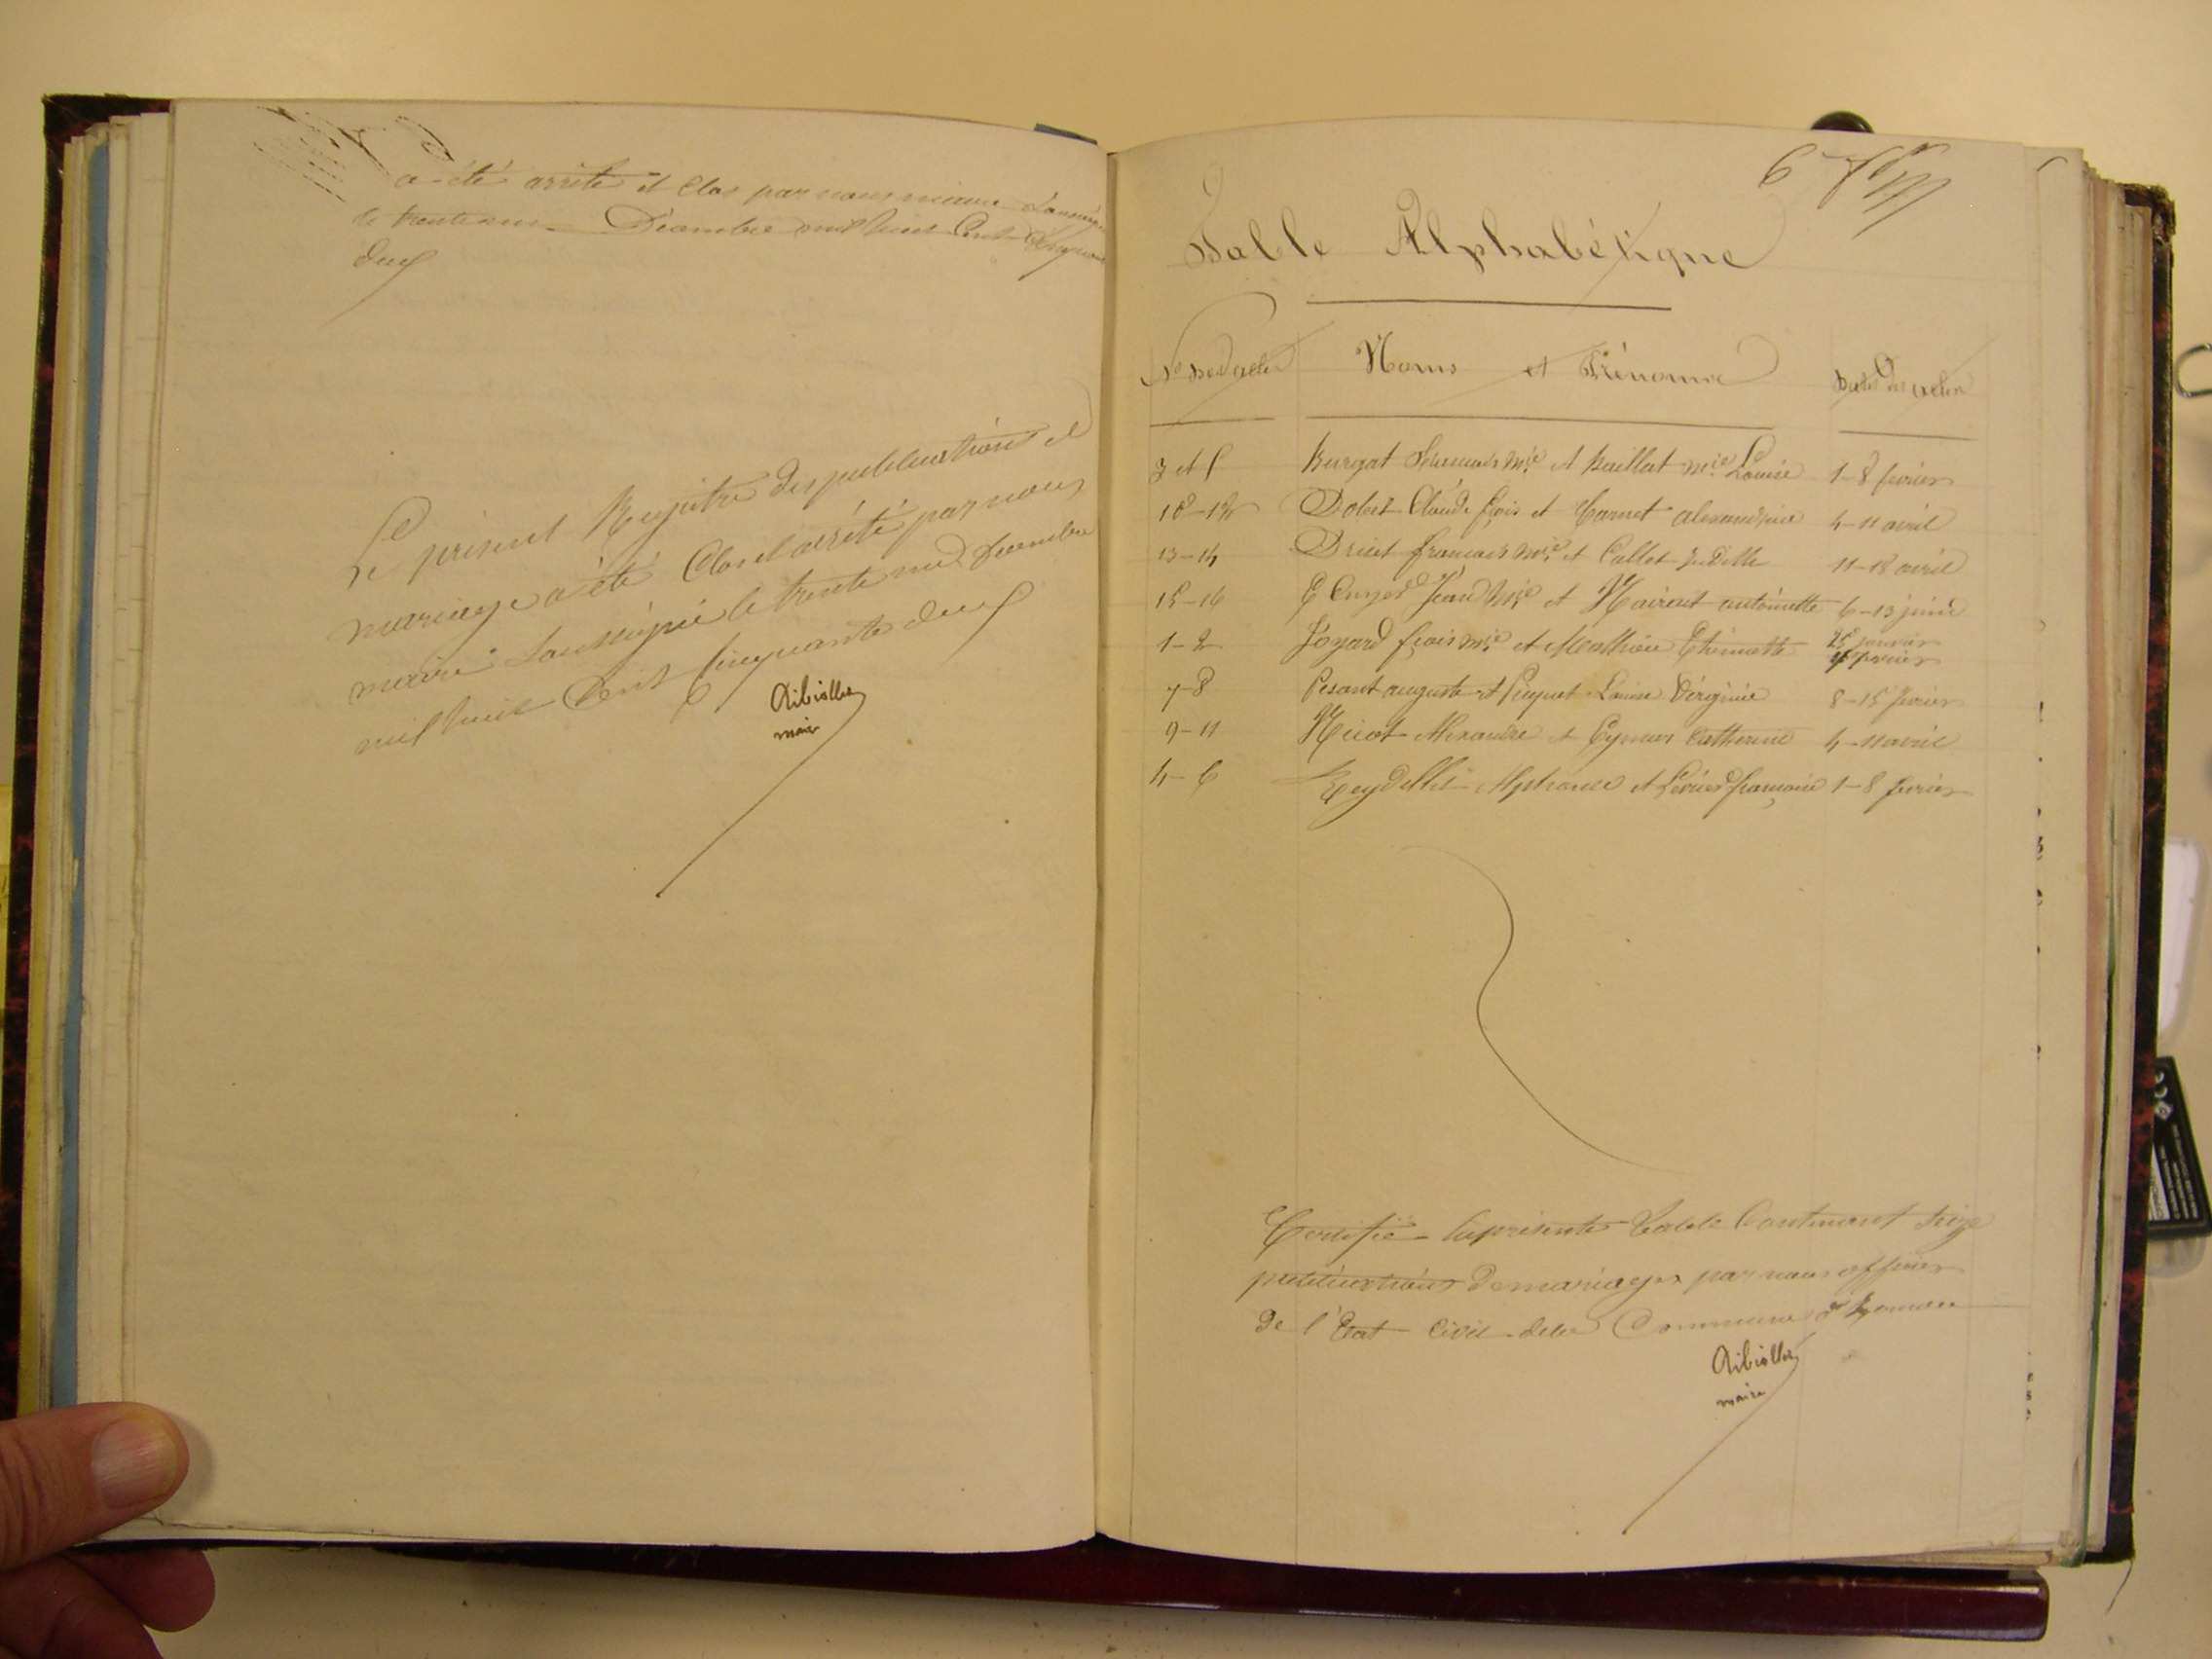 a été arrêté et Clos par nous maire soussigné
le trente un Décembre mil huit Cent Cinquante
deux
Le présent Registre des publications de
mariage a été Clos et arrêté par nous
maire soussigné le trente un Décembre
mil huit Cent Cinquante deux
maire
6
Table Alphabétique
Nos des actes
Noms et Prénoms
Dates des actes
3 et 5 Burgat et Baillat mie Louise 1-8 fevrier
10-12 Dolest Claude fçois et Carnet alexandrine 4-11 avril
13-14 Druet français mie et Callet 11-18 avril
15-16 Jean mie et antoinette 6-13 juin
1-2 Joyard fçois mie et Mathieu Etiennette 25 janvier
fevrier
7-8 Pesant auguste et Louise Virginie 8-15 fevrier
9-11 Alexandre et Catherine 4-11 avril
4-6 Reydellet Alphonse et françoise 1-8 fevrier
Certifié la présente Table Contenant seize
publications de mariages par nous officier
de l'Etat Civil de la Commune
maire